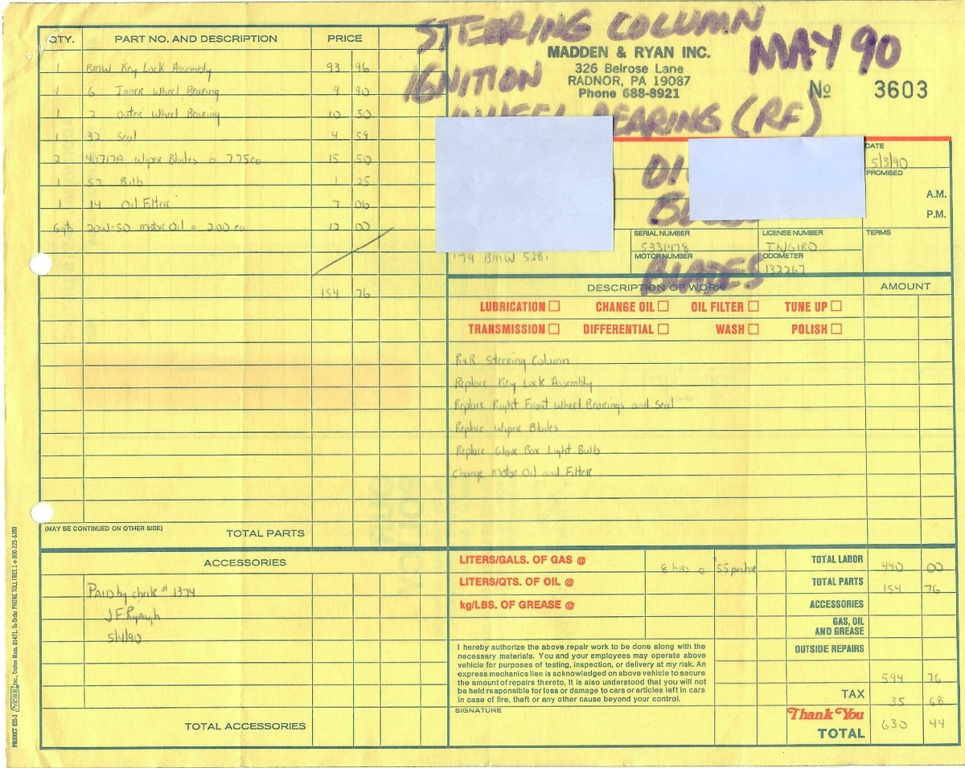 STEERING COLUMN
MAY 90
IGNITION
WHEEL BEARING (RF)
OIL
BLADES
MADDEN & RYAN INC.
326 Belrose Lane
RADNOR, PA 19087
Phone 688-8921
No 3603
QTY. PART NO. AND DESCRIPTION PRICE
1 BMW Key Lock Assembly 93 96
1 6 Inner Wheel Bearing 9 90
1 2 Outer Wheel Bearing 10 50
1 32 Seal 4 59
2 40717A Wiper Blades @ 7.75ea 15 50
1 57 Bulb 1 25
1 14 Oil Filter 7 06
6qts 20W-50 Motor Oil @ 2.00 ea 12 00
154 76
(MAY BE CONTINUED ON OTHER SIDE) TOTAL PARTS
ACCESSORIES
Paid by check # 1374
5/4/90
TOTAL ACCESSORIES
DATE
5/3/90
PROMISED
A.M.
P.M.
SERIAL NUMBER
5331478
LICENSE NUMBER
TERMS
'79 BMW 528i
MOTOR NUMBER
ODOMETER
132267
DESCRIPTION OF WORK AMOUNT
LUBRICATION CHANGE OIL OIL FILTER TUNE UP
TRANSMISSION DIFFERENTIAL WASH POLISH
R&R Steering Column
Replace Key Lock Assembly
Replace Right Front Wheel Bearings and Seal
Replace Wiper Blades
Replace Glove Box Light Bulb
Change Motor Oil and Filter
LITERS/GALS. OF GAS @
8 hrs @ 55 per hr
LITERS/QTS. OF OIL @
kg/LBS. OF GREASE @
TOTAL LABOR 440 00
TOTAL PARTS 154 76
ACCESSORIES
GAS, OIL
AND GREASE
OUTSIDE REPAIRS
594 76
TAX 35 68
Thank You
TOTAL 630 44
I hereby authorize the above repair work to be done along with the
necessary materials. You and your employees may operate above
vehicle for purposes of testing, inspection, or delivery at my risk. An
express mechanics lien is acknowledged on above vehicle to secure
the amount of repairs thereto. It is also understood that you will not
be held responsible for loss or damage to cars or articles left in cars
in case of fire, theft or any other cause beyond your control.
SIGNATURE